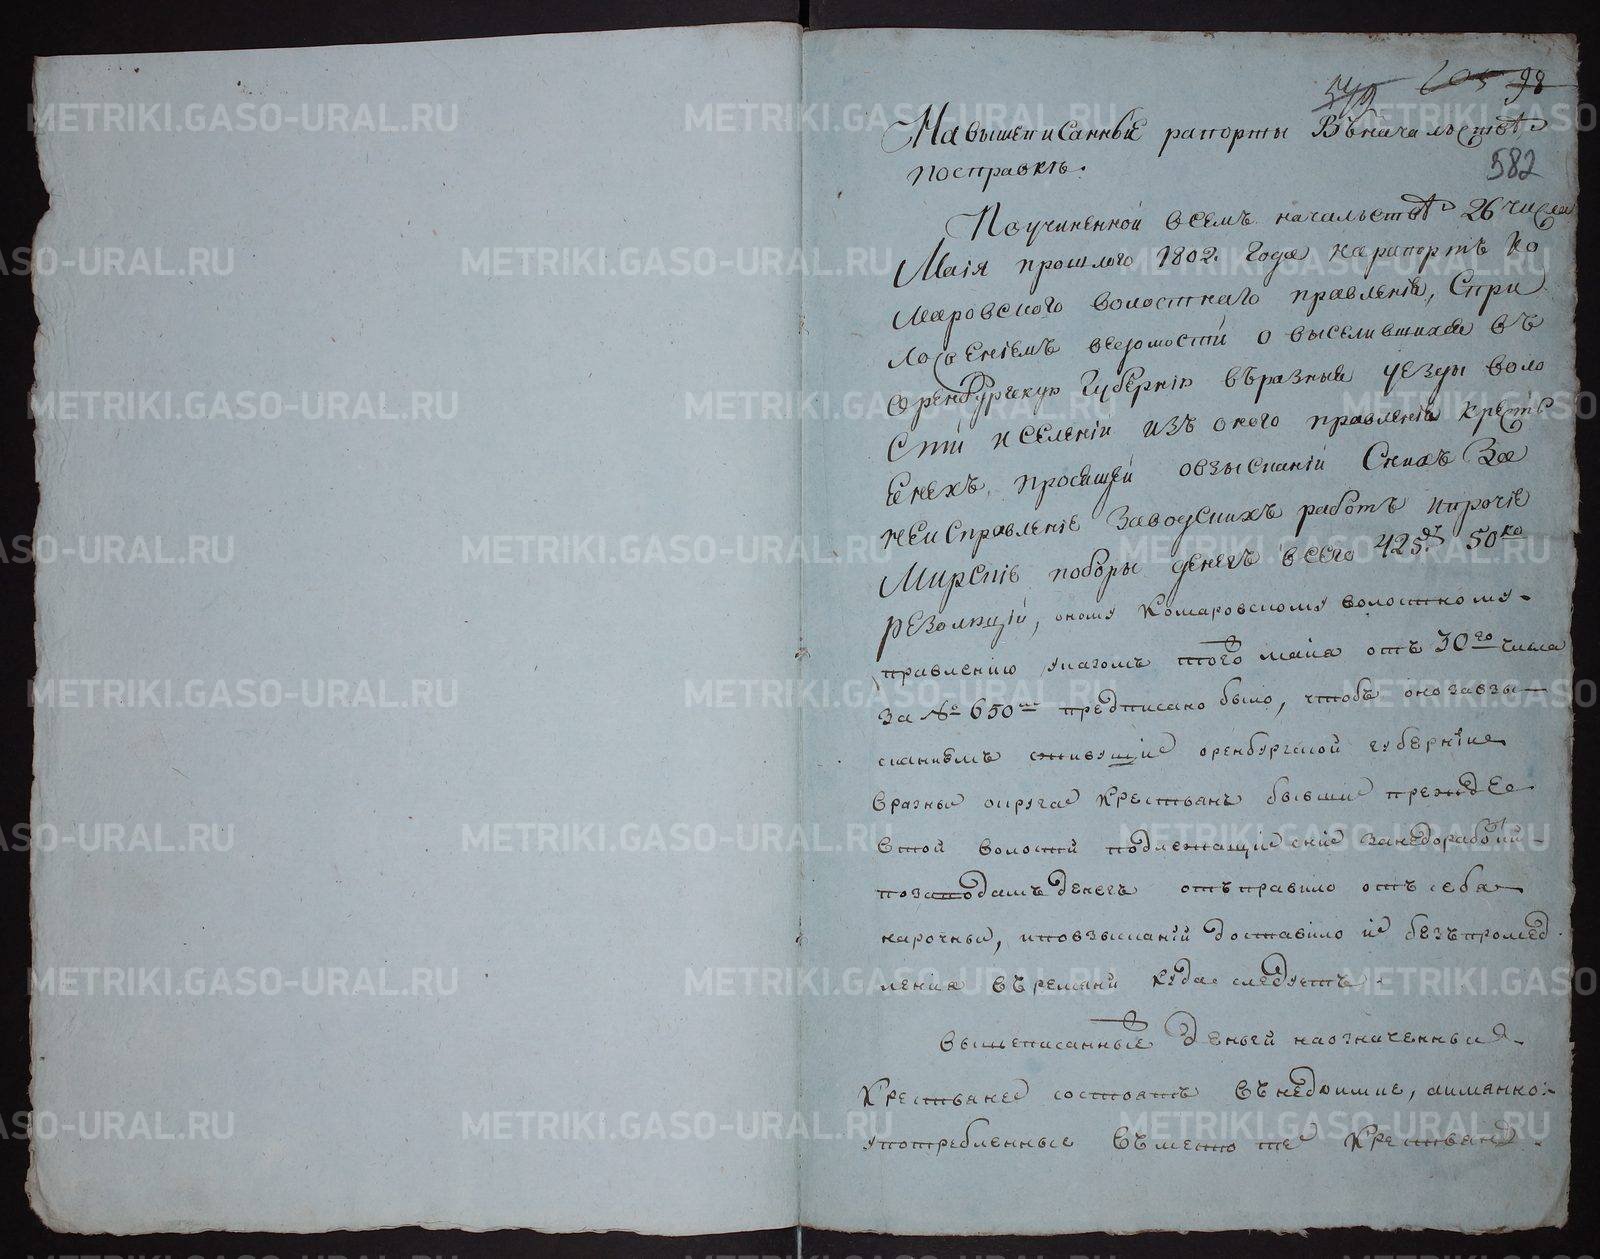 98
582
На вышеписанные рапорты Въ началстве
посправке.
Поучиненной всемъ началстве 26 числа
Маія прошлого 1802. Года на рапортъ Ко
маровского волостнаго правленіе, Спри
ложеніемъ ведомости о выселившихся въ
оренбургскую Губернію въразные уезды воло
сти и селеніи изъ оного правленіе крестья
енехъ, просящей овзысканіи Снихъ За
неисправленіе Заводскихъ работъ ипрочіе
Мирскіе поборы денегъ всего 425 50ко
резолюціи, оному Комаровскому волостному
правлению указомъ того маиа отъ 30го числа
За № 650мъ предписано было, чтобъ оно завзы
сканиемъ сживущие оренбургской губерніи
вразные округа крестьянъ бывши прежде
втой волости подлежащие сніе занедоработки
позаподамъ денегъ отъправило отъ себя
нарочные, иповзысканій доставило ие безъпромед
ления въремяни куда следуетъ.
вышеписанные деньги наозначенные
крестьяне состоятъ въ недоимке,
употребленные въместо те крестьяне
METRIKI.GASO-URAL.RU